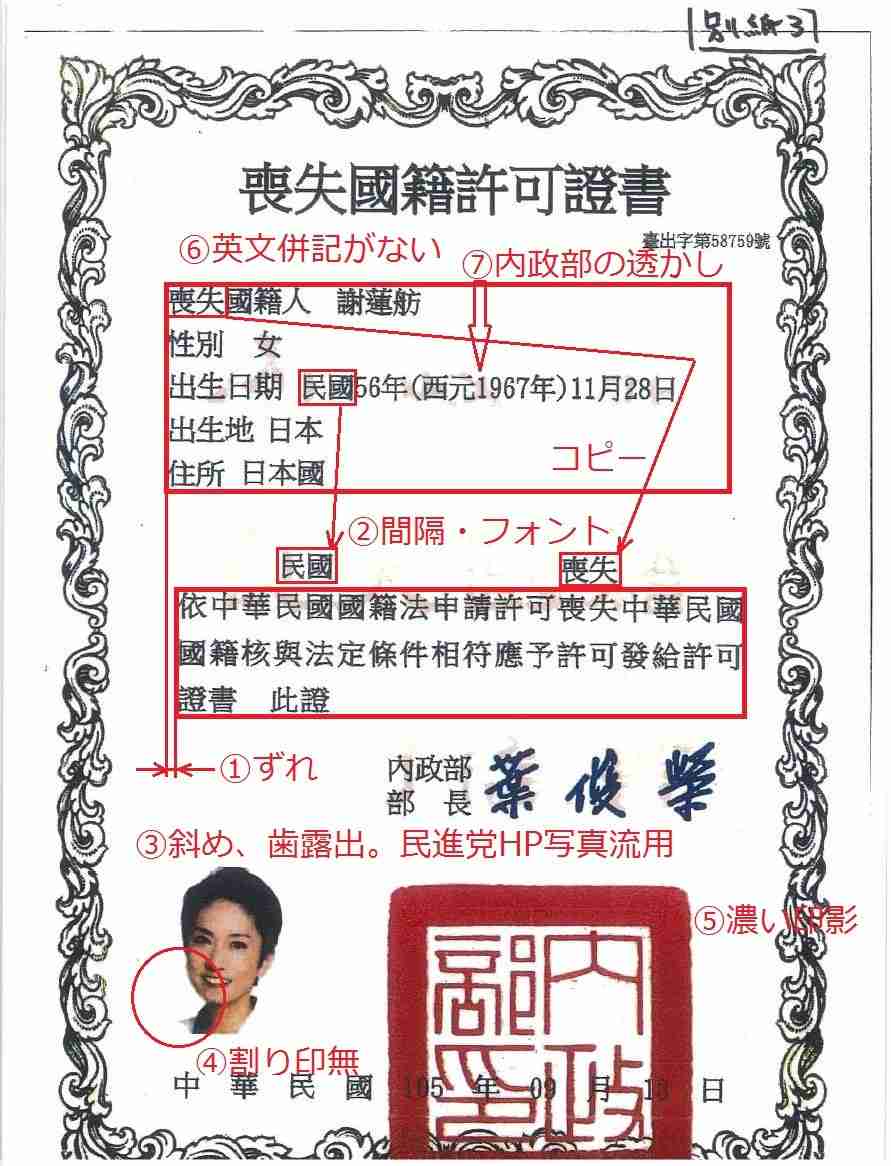 別紙3
喪失國籍許可證書
臺出字第58759號
⑥英文併記がない
⑦内政部の透かし
喪失國籍人　謝蓮舫
性別　女
出生日期　民國56年(西元1967年)11月28日
出生地 日本
住所 日本國
コピー
②間隔・フォント
民國
喪失
依中華民國國籍法申請許可喪失中華民國
國籍核與法定條件相符應予許可發給許可
證書　此證
①ずれ
內政部
部　長 葉俊榮
③斜め、歯露出。民進党HP写真流用
⑤濃い印影
內政
部印
④割り印無
中　華　民　國　105　年　09　月　13　日